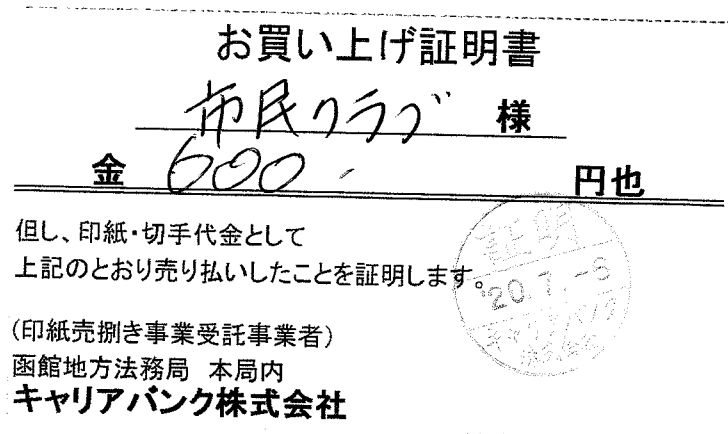 お買い上げ証明書
市民クラブ 様
金 600- 円也
但し、印紙・切手代金として
上記のとおり売り払いしたことを証明します。
証明
'20.7.-6
キャリアバンク
株式会社
(印紙売捌き事業受託事業者)
函館地方法務局 本局内
キャリアバンク株式会社